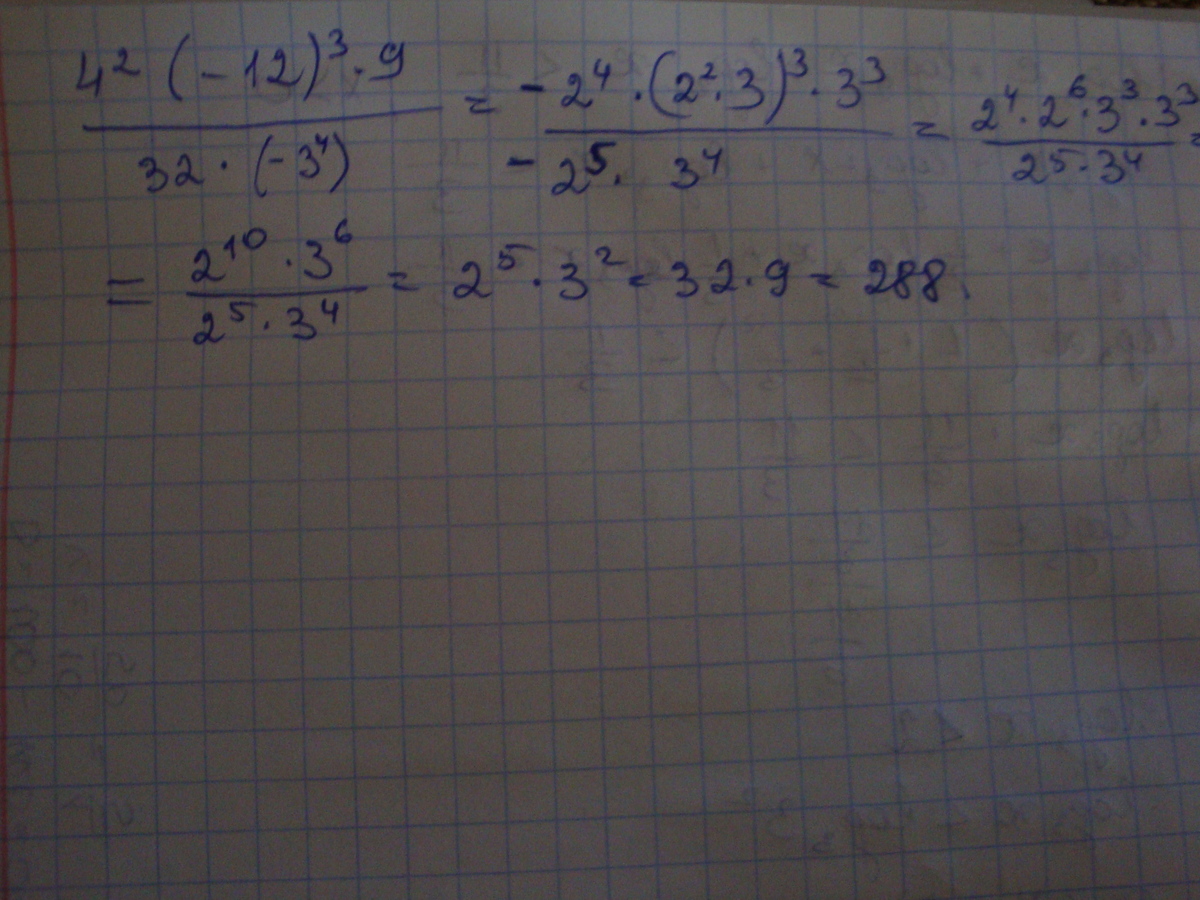 4² (-12)³·9 / 32·(-3⁴) = -2⁴·(2²·3)³·3³ / -2⁵·3⁴ = 2⁴·2⁶·3³·3³ / 2⁵·3⁴ =
= 2¹⁰·3⁶ / 2⁵·3⁴ = 2⁵·3² = 32·9 = 288.